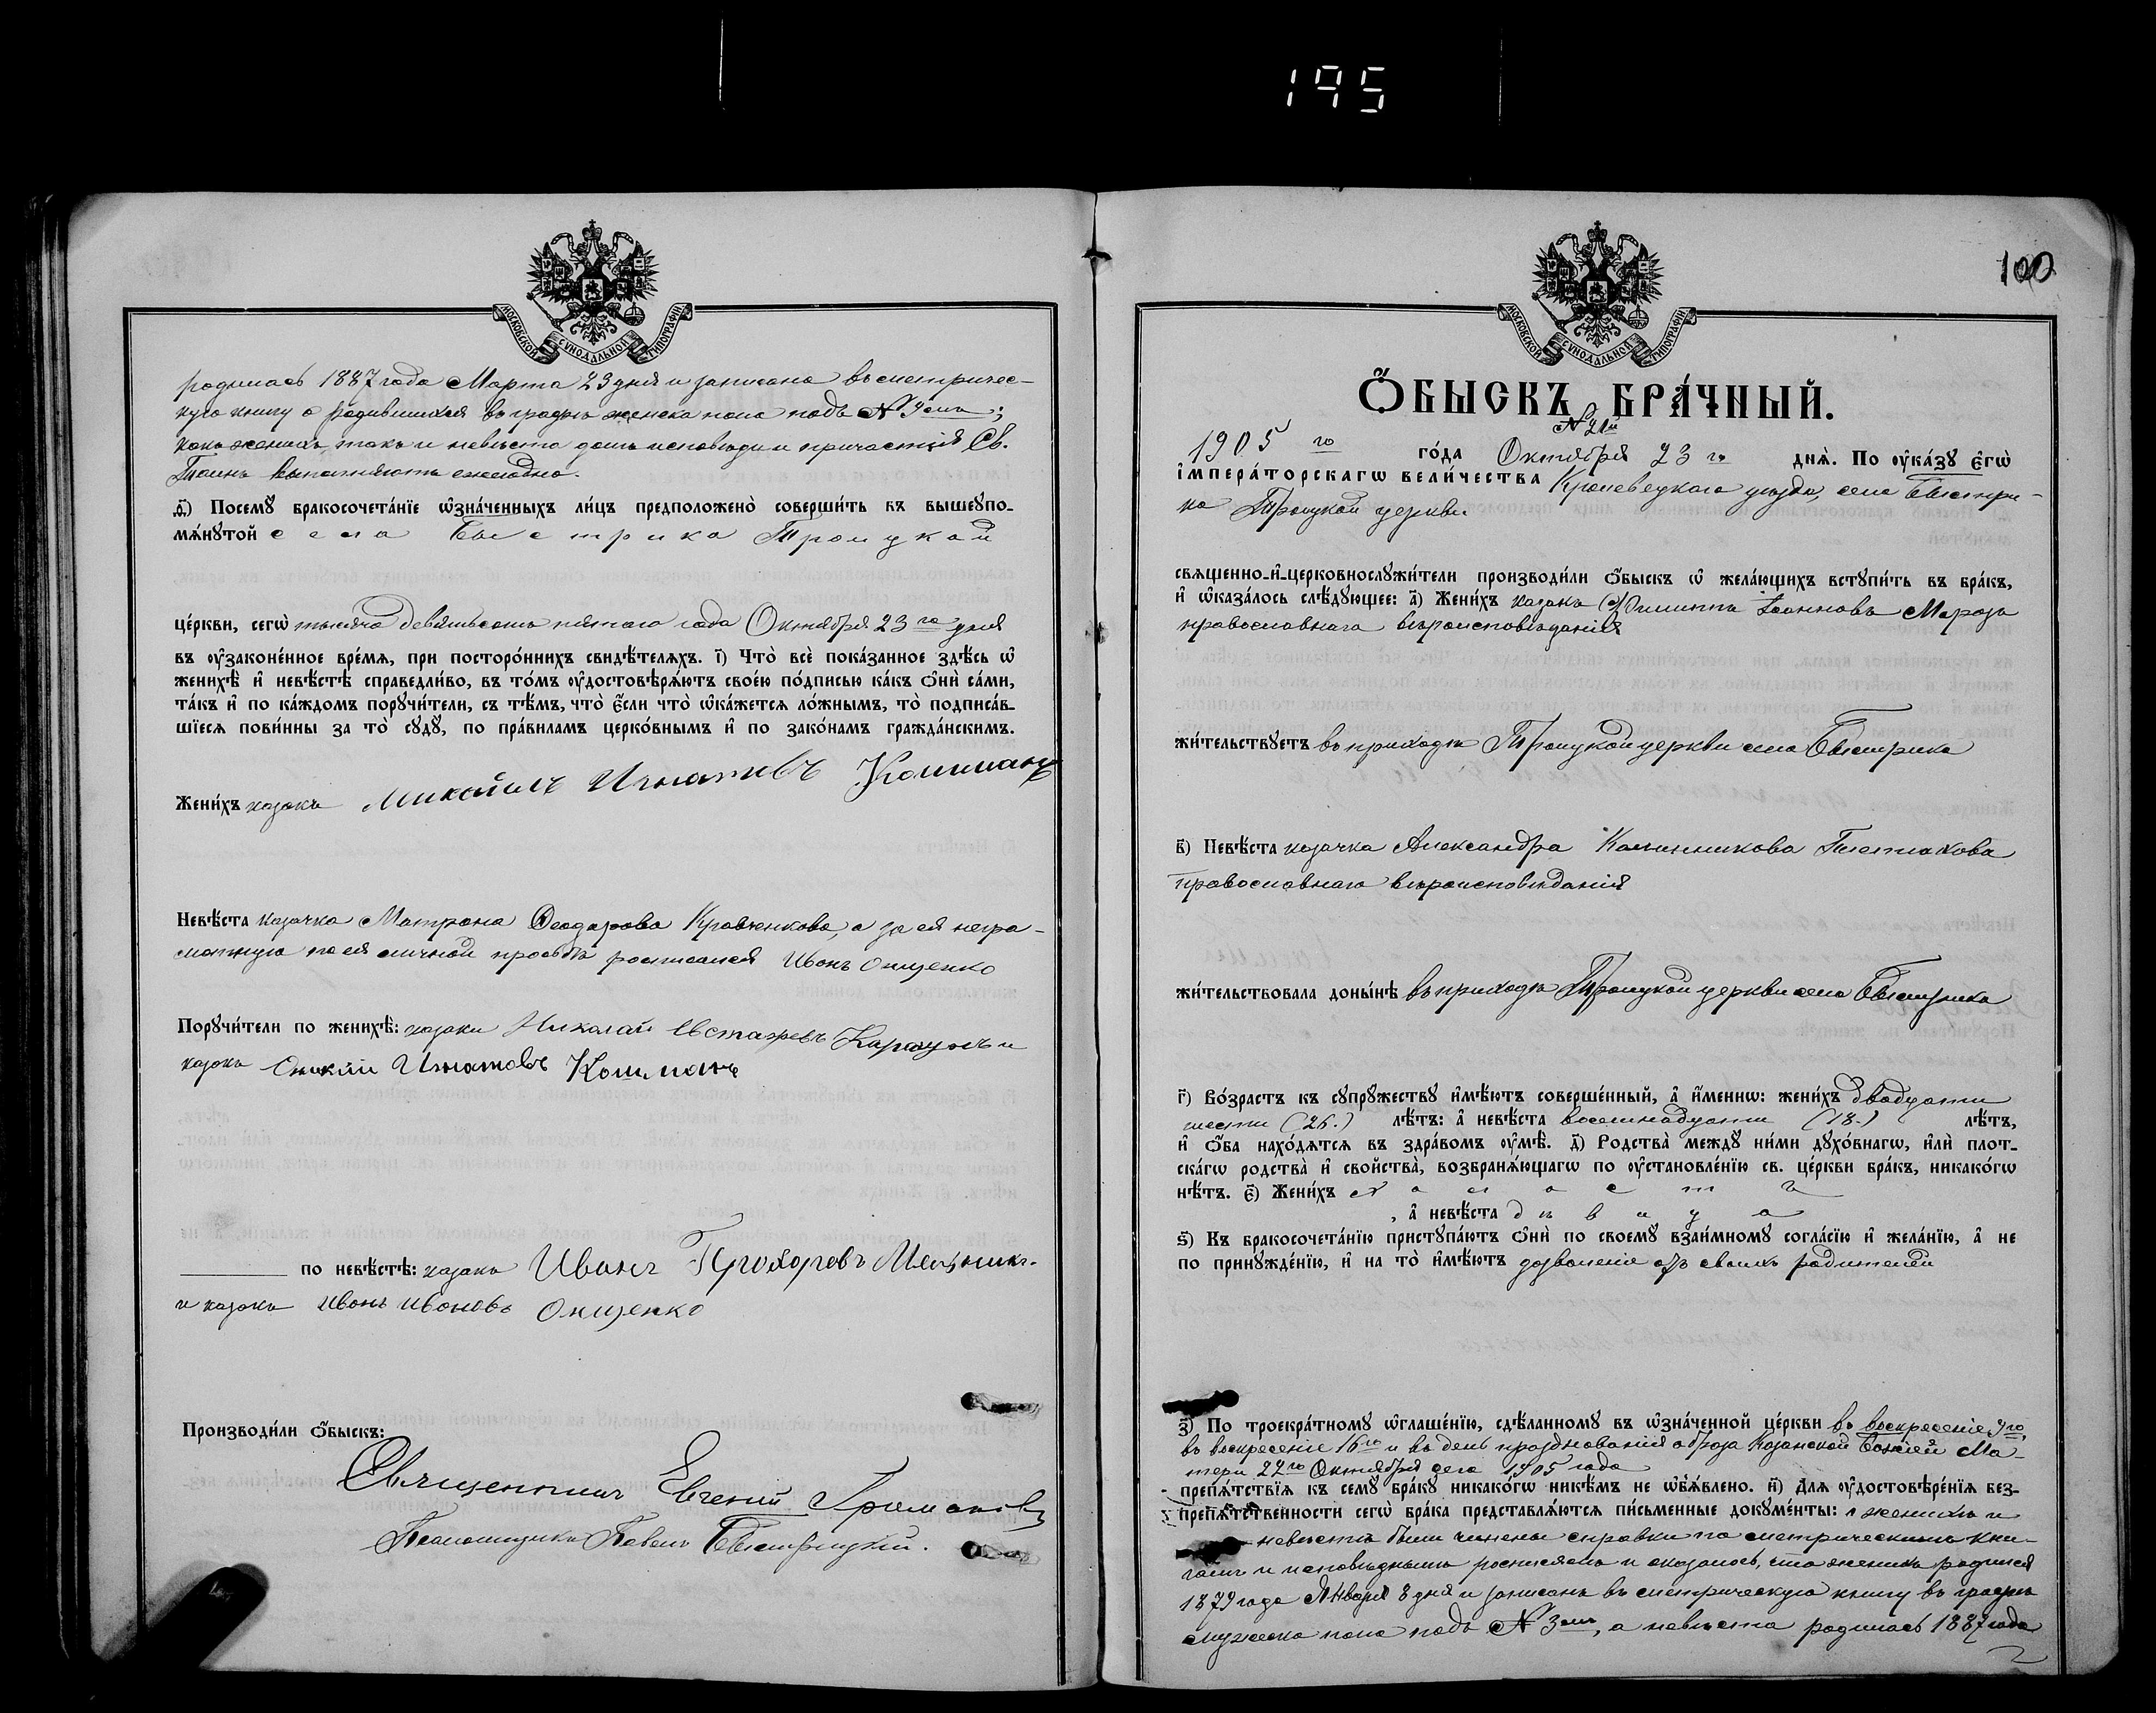 195
МОСКОВСКОЙ СУНОДАЛЬНОЙ ТИПОГРАФІИ
родилась 1887 года Марта 23 дня и записана въ метричес-
кую книгу о родившихся въ графѣ женска пола подъ № 9омъ;
какъ женихъ, такъ и невѣста долгъ исповѣди и причастія Св.
Таинъ выполняютъ ежегодно.
ѳ҃) Посемꙋ бракосочета́нїе ѡ҆зна́ченныхъ ли́цъ предположено̀ соверши́ть въ вышеꙋпо-
мѧ́нꙋтой села Быстрика Троицкой
це́ркви, сегѡ̀ тысяча девятьсотъ пятаго года Октября 23го дня
въ ᲂу҆законе́нное вре́мѧ, при посторо́ннихъ свидѣ́телѧхъ. і҃) Что̀ всѐ пока́занное здѣ́сь ѡ҆
женихѣ̀ и҆ невѣ́стѣ справедли́во, въ то́мъ ᲂу҆достовѣрѧ́ютъ свое́ю по́дписью ка́къ ѻ҆нѝ са́ми,
та́къ и҆ по ка́ждомъ порꙋчи́тели, съ тѣ́мъ, что̀ є҆́сли что̀ ѡ҆ка́жетсѧ ло́жнымъ, то̀ подписа́в-
шїесѧ пови́нны за то̀ сꙋдꙋ̀, по пра́виламъ церко́внымъ и҆ по зако́намъ гражда́нскимъ.
Жени́хъ казакъ Михаилъ Игнатовъ Кошманъ
Невѣ́ста казачка Матрона Ѳеодорова Кравченкова, а за ея негра-
мотную по ея личной просьбѣ росписался Иванъ Онищенко
Порꙋчи́тели по женихѣ̀: казаки Николай Караулъ и
казакъ Игнатовъ Кошманъ
по невѣ́стѣ: казакъ Иванъ Прохоровъ Мельникъ
и казакъ Иванъ Ивановъ Онищенко
Производи́ли ѻ҆́быскъ:
Священникъ Евгеній
Псаломщикъ Павелъ Быстрицкій.
100
МОСКОВСКОЙ СУНОДАЛЬНОЙ ТИПОГРАФІИ
Ѻ҆́БЫСКЪ БРА́ЧНЫЙ.
№ 21й
1905 го го́да Октября 23 го днѧ̀. По ᲂу҆ка́зꙋ є҆гѡ̀
і҆мпера́торскагѡ вели́чества Кролевецкаго уѣзда, села Быстри-
ка Троицкой церкви
свѧщенно-и҆-церковнослꙋжи́тели производи́ли ѻ҆́быскъ ѡ҆ жела́ющихъ встꙋпи́ть въ бра́къ,
и҆ ѡ҆каза́лось слѣ́дꙋющее: а҃) Жени́хъ казакъ Филиппъ Іоанновъ Морозъ
православнаго вѣроисповѣданія
жи́тельствꙋетъ въ приходѣ Троицкой церкви села Быстрика
в҃) Невѣ́ста казачка Александра Калинникова
православнаго вѣроисповѣданія
жи́тельствовала доны́нѣ въ приходѣ Троицкой церкви села Быстрика
г҃) Во́зрастъ къ сꙋпрꙋ́жествꙋ и҆мѣ́ютъ соверше́нный, а҆ и҆́меннѡ: жени́хъ двадцати
шести (26.) лѣ́тъ: а҆ невѣ́ста восемнадцати (18.) лѣ́тъ,
и҆ ѻ҆́ба нахо́дѧтсѧ въ здра́вомъ ᲂу҆мѣ̀. д҃) Родства̀ междꙋ ни́ми дꙋхо́внагѡ, и҆лѝ плот-
ска́гѡ родства̀ и҆ свойства̀, возбранѧ́ющагѡ по ᲂу҆становле́нїю св. це́ркви бра́къ, никако́гѡ
нѣ́тъ. є҃) Жени́хъ холостъ
, а҆ невѣ́ста дѣвица
ѕ҃) Къ бракосочета́нїю пристꙋпа́ютъ ѻ҆нѝ по своемꙋ̀ взаи́мномꙋ согла́сїю и҆ жела́нїю, а҆ не
по принꙋжде́нїю, и҆ на то̀ и҆мѣ́ютъ дозволеніе отъ своихъ родителей
з҃) По троекра́тномꙋ ѡ҆глаше́нїю, сдѣ́ланномꙋ въ ѡ҆зна́ченной це́ркви въ воскресеніе 9го,
въ воскресеніе 16го и въ день празднованія образа Казанской Божіей Ма-
тери 22го Октября сего 1905 года
препѧ́тствїѧ къ семꙋ̀ бра́кꙋ никако́гѡ никѣ́мъ не ѡ҆б̾ѧ́влено. и҃) Длѧ ᲂу҆достовѣре́нїѧ без-
препѧ́тственности сегѡ̀ бра́ка представлѧ́ютсѧ пи́сьменные докꙋме́нты: о женихѣ и
невѣстѣ были чинены справки по метрическимъ кни-
гамъ и исповѣднымъ росписямъ и оказалось, что женихъ родился
1879 года Января 8 дня и записанъ въ метрическую книгу въ графѣ
мужеска пола подъ № 3омъ, а невѣста родилась 1887 года